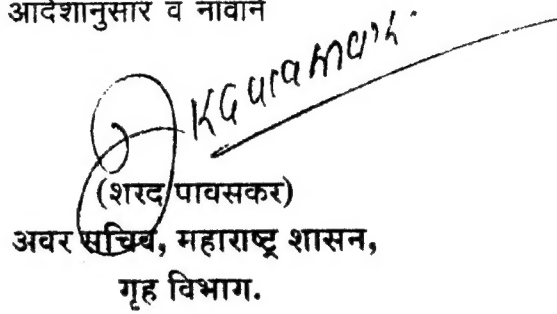 आदेशानुसार व नावाने
(शरद पावसकर)
अवर सचिव, महाराष्ट्र शासन,
गृह विभाग.